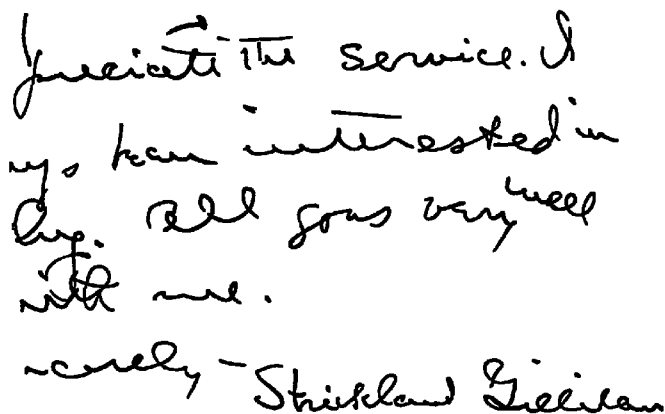 preciate the service. I
ys been interested in
. All goes very well
with me.
ncerely - Strickland Gillilan